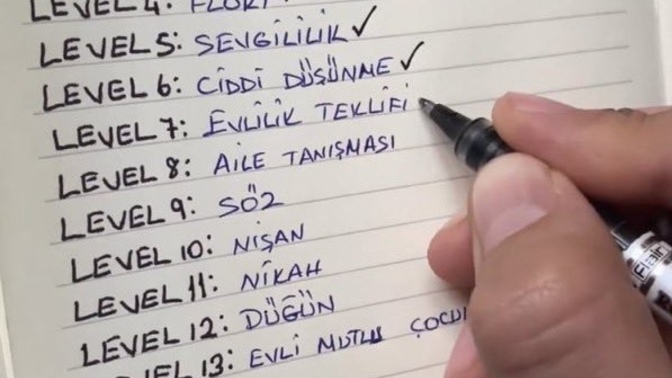 LEVEL 4: FLÖRT
LEVEL 5: SEVGİLİLİK ✓
LEVEL 6: CİDDİ DÜŞÜNME ✓
LEVEL 7: EVLİLİK TEKLİFİ
LEVEL 8: AİLE TANIŞMASI
LEVEL 9: SÖZ
LEVEL 10: NİŞAN
LEVEL 11: NİKAH
LEVEL 12: DÜĞÜN
LEVEL 13: EVLİ MUTLU
Flair